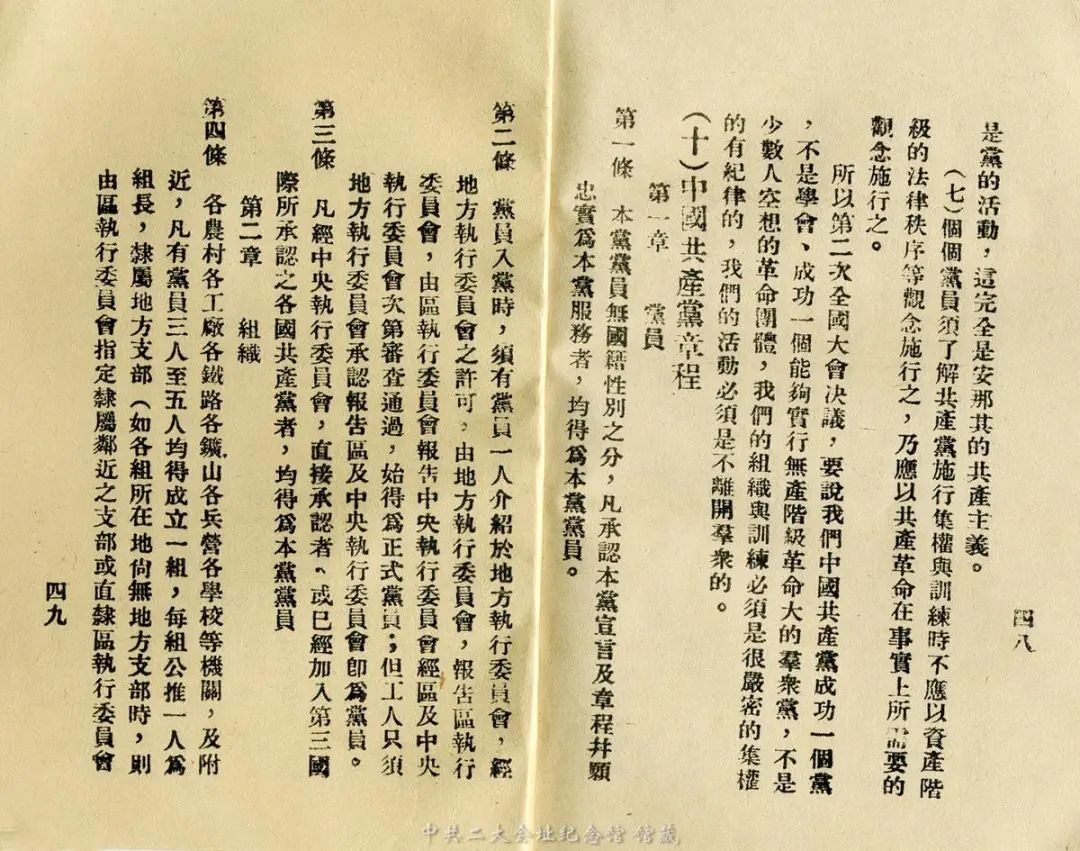 四八
是黨的活動，這完全是安那其的共產主義。
（七）個個黨員須了解共產黨施行集權與訓練時不應以資產階
級的法律秩序等觀念施行之，乃應以共產革命在事實上所需要的
觀念施行之。
所以第二次全國大會決議，要說我們中國共產黨成功一個黨
，不是學會、成功一個能夠實行無產階級革命大的羣衆黨，不是
少數人空想的革命團體，我們的組織與訓練必須是很嚴密的集權
的有紀律的，我們的活動必須是不離開羣衆的。
（十）中國共產黨章程
第一章　黨員
第一條　本黨黨員無國籍性別之分，凡承認本黨宣言及章程幷願
忠實爲本黨服務者，均得爲本黨黨員。
第二條　黨員入黨時，須有黨員一人介紹於地方執行委員會，經
地方執行委員會之許可，由地方執行委員會，報告區執行
委員會，由區執行委員會報告中央執行委員會經區及中央
執行委員會次第審查通過，始得爲正式黨員；但工人只須
地方執行委員會承認報告區及中央執行委員會卽爲黨員。
第三條　凡經中央執行委員會，直接承認者、或已經加入第三國
際所承認之各國共產黨者，均得爲本黨黨員
第二章　組織
第四條　各農村各工廠各鐵路各鑛山各兵營各學校等機關，及附
近，凡有黨員三人至五人均得成立一組，每組公推一人爲
組長，隸屬地方支部（如各組所在地尙無地方支部時，則
由區執行委員會指定隸屬鄰近之支部或直隸區執行委員會
四九
中共二大会址纪念馆 馆藏